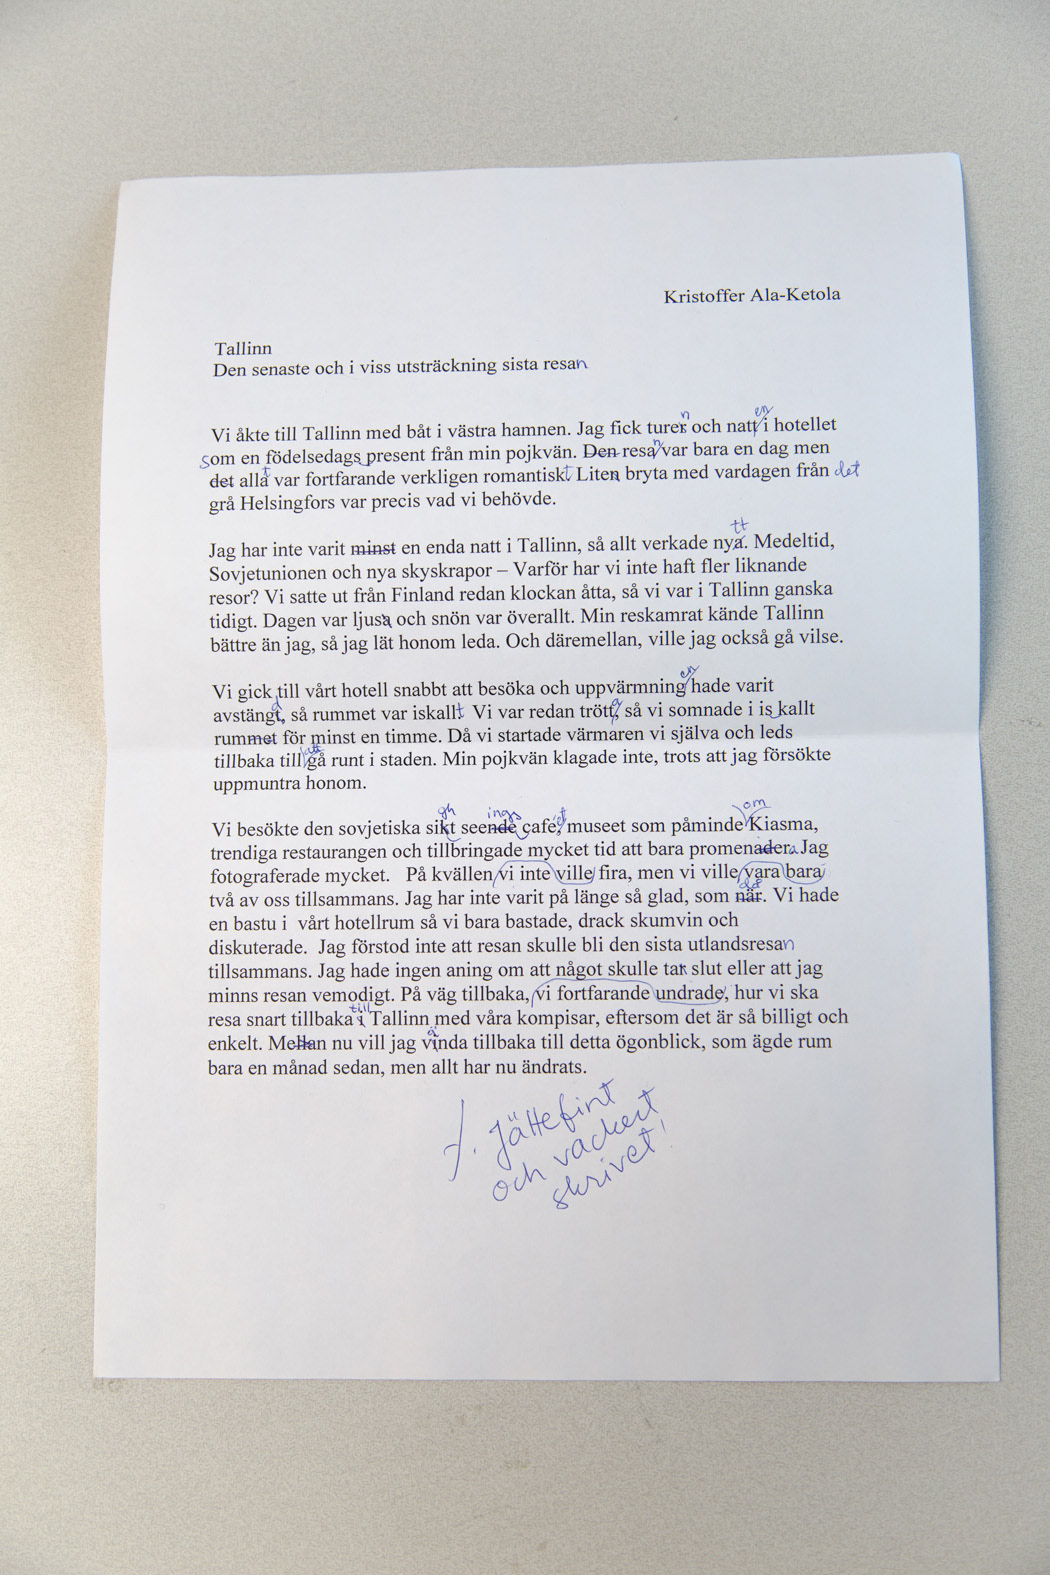 Kristoffer Ala-Ketola
Tallinn
Den senaste och i viss utsträckning sista resan
n en
Vi åkte till Tallinn med båt i västra hamnen. Jag fick turer och natt i hotellet
som en födelsedags present från min pojkvän. Den resa n var bara en dag men
det alla t var fortfarande verkligen romantiskt Liten bryta med vardagen från det
grå Helsingfors var precis vad vi behövde.
tt
Jag har inte varit minst en enda natt i Tallinn, så allt verkade nya. Medeltid,
Sovjetunionen och nya skyskrapor – Varför har vi inte haft fler liknande
resor? Vi satte ut från Finland redan klockan åtta, så vi var i Tallinn ganska
tidigt. Dagen var ljusa och snön var överallt. Min reskamrat kände Tallinn
bättre än jag, så jag lät honom leda. Och däremellan, ville jag också gå vilse.
en
Vi gick till vårt hotell snabbt att besöka och uppvärmning hade varit
d a
avstängt, så rummet var iskallt Vi var redan trött, så vi somnade i is kallt
rummet för minst en timme. Då vi startade värmaren vi själva och leds
att
tillbaka till gå runt i staden. Min pojkvän klagade inte, trots att jag försökte
uppmuntra honom.
gh ings et om
Vi besökte den sovjetiska sikt seende café, museet som påminde Kiasma,
trendiga restaurangen och tillbringade mycket tid att bara promenader a Jag
fotograferade mycket. På kvällen vi inte ville fira, men vi ville vara bara
då
två av oss tillsammans. Jag har inte varit på länge så glad, som när. Vi hade
en bastu i vårt hotellrum så vi bara bastade, drack skumvin och
diskuterade. Jag förstod inte att resan skulle bli den sista utlandsresan
tillsammans. Jag hade ingen aning om att något skulle tar slut eller att jag
minns resan vemodigt. På väg tillbaka, vi fortfarande undrade, hur vi ska
till
resa snart tillbaka i Tallinn med våra kompisar, eftersom det är så billigt och
ä
enkelt. Mellan nu vill jag vinda tillbaka till detta ögonblick, som ägde rum
bara en månad sedan, men allt har nu ändrats.
Jättefint
och vackert
skrivet!